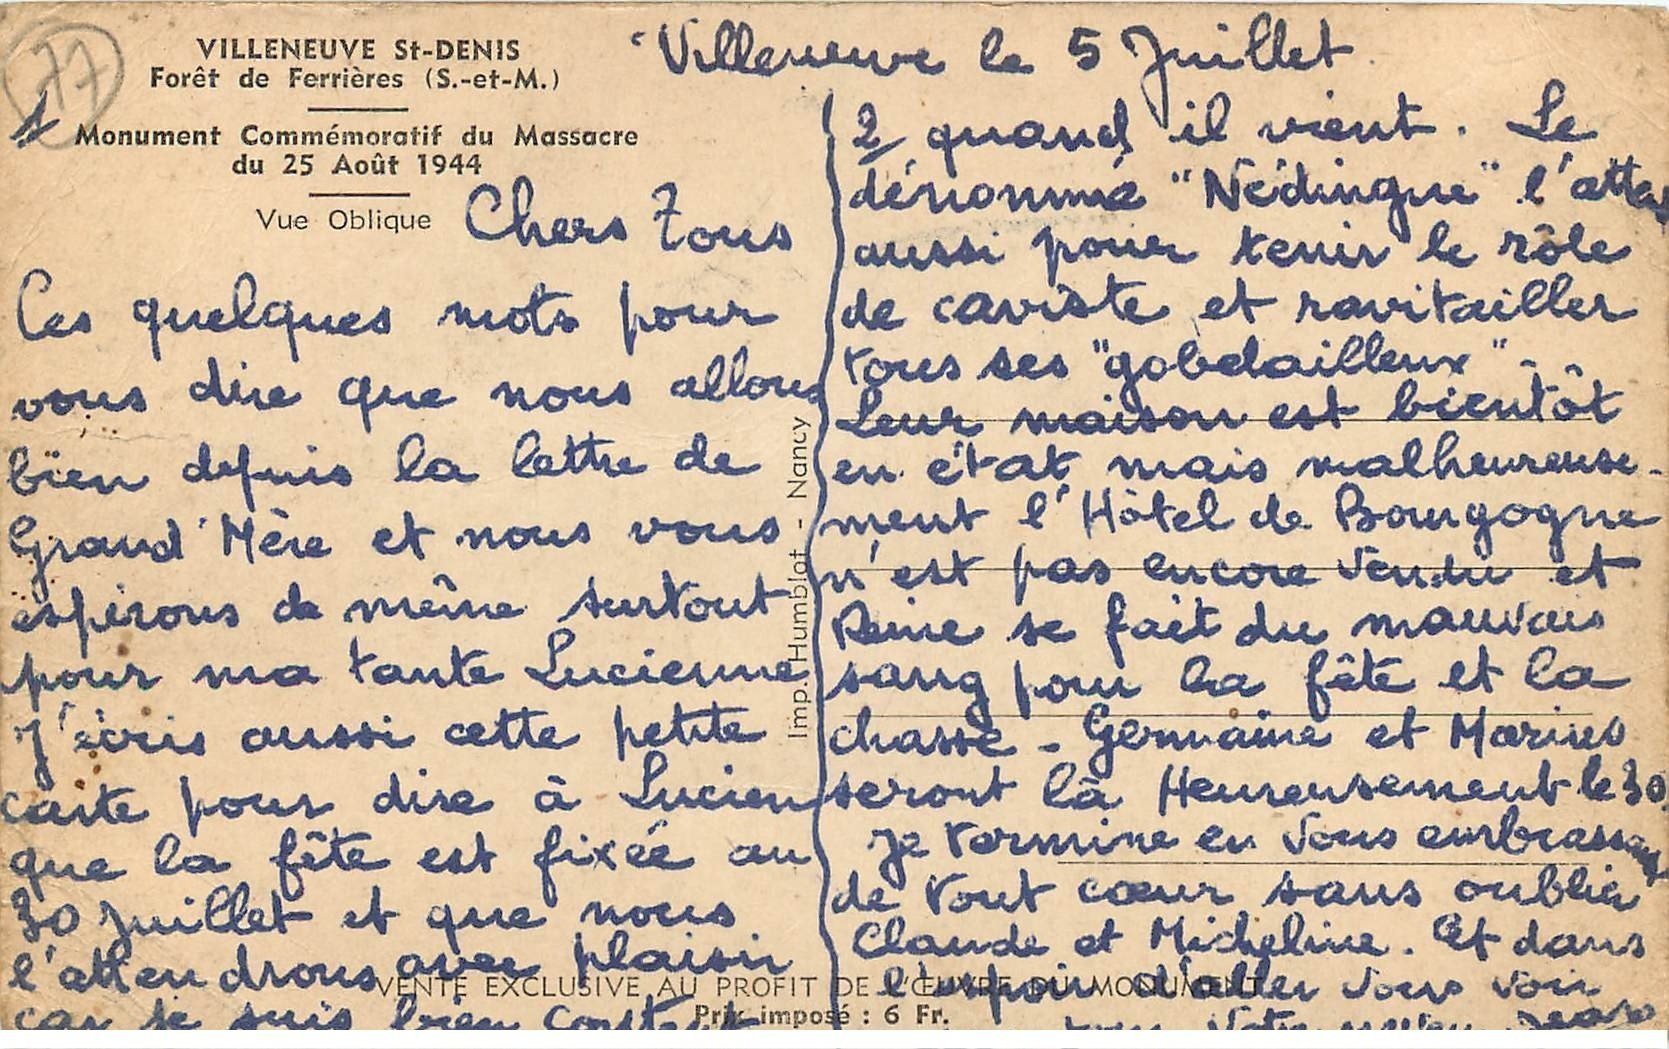 77
VILLENEUVE St-DENIS
Forêt de Ferrières (S.-et-M.)
Monument Commémoratif du Massacre
du 25 Août 1944
Vue Oblique
Villeneuve le 5 Juillet.
1
Chers Tous
Ces quelques mots pour
vous dire que nous allons
bien depuis la lettre de
Grand'Mère et nous vous
espérons de même surtout
pour ma tante Lucienne
J'écris aussi cette petite
carte pour dire à Lucien
que la fête est fixée au
30 Juillet et que nous
l'attendrons avec plaisir
car je suis bien content
Imp. Humblot - Nancy
2 quand il vient. Le
dénommé "Nédingue" l'attend
aussi pour tenir le rôle
de caviste et ravitailler
tous ses "gobelailleux".
Leur maison est bientôt
en état mais malheureuse-
ment l'Hôtel de Bourgogne
n'est pas encore vendu et
Reine se fait du mauvais
sang pour la fête et la
chasse - Germaine et Marius
seront là Heureusement le 30.
Je termine en vous embrassant
de tout cœur sans oublier
Claude et Micheline. Et dans
l'espoir d'aller vous voir
votre neveu Jean
VENTE EXCLUSIVE AU PROFIT DE L'ŒUVRE DU MONUMENT
Prix imposé : 6 Fr.